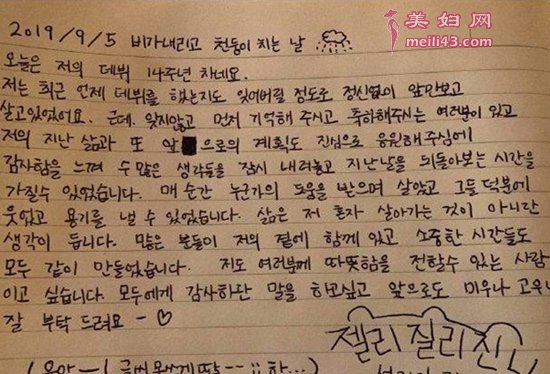 美妇网
meili43.com
2019/9/5 비가내리고 천둥이 치는 날
오늘은 저의 데뷔 14주년 차네요.
저는 최근 언제 데뷔를 했는지도 잊어버릴 정도로 정신없이 앞만보고
살고있었어요. 근데, 잊지않고 먼저 기억해 주시고 축하해주시는 여러분이 있고
저의 지난 삶과 또 앞으로의 계획도 진심으로 응원해주심에
감사함을 느껴 수 많은 생각들을 잠시 내려놓고 지난날을 되돌아보는 시간을
가질수 있었습니다. 매 순간 누군가의 도움을 받으며 살았고 그들 덕분에
웃었고 용기를 낼 수 있었습니다. 삶은 저 혼자 살아가는 것이 아니란
생각이 듭니다. 많은 분들이 저의 곁에 함께 있고 소중한 시간들도
모두 같이 만들었습니다. 저도 여러분께 따뜻함을 전할수 있는 사람
이고 싶습니다. 모두에게 감사하단 말을 하고싶고 앞으로도 미우나 고우나
잘 부탁 드려요 - ♡
젤리젤리진